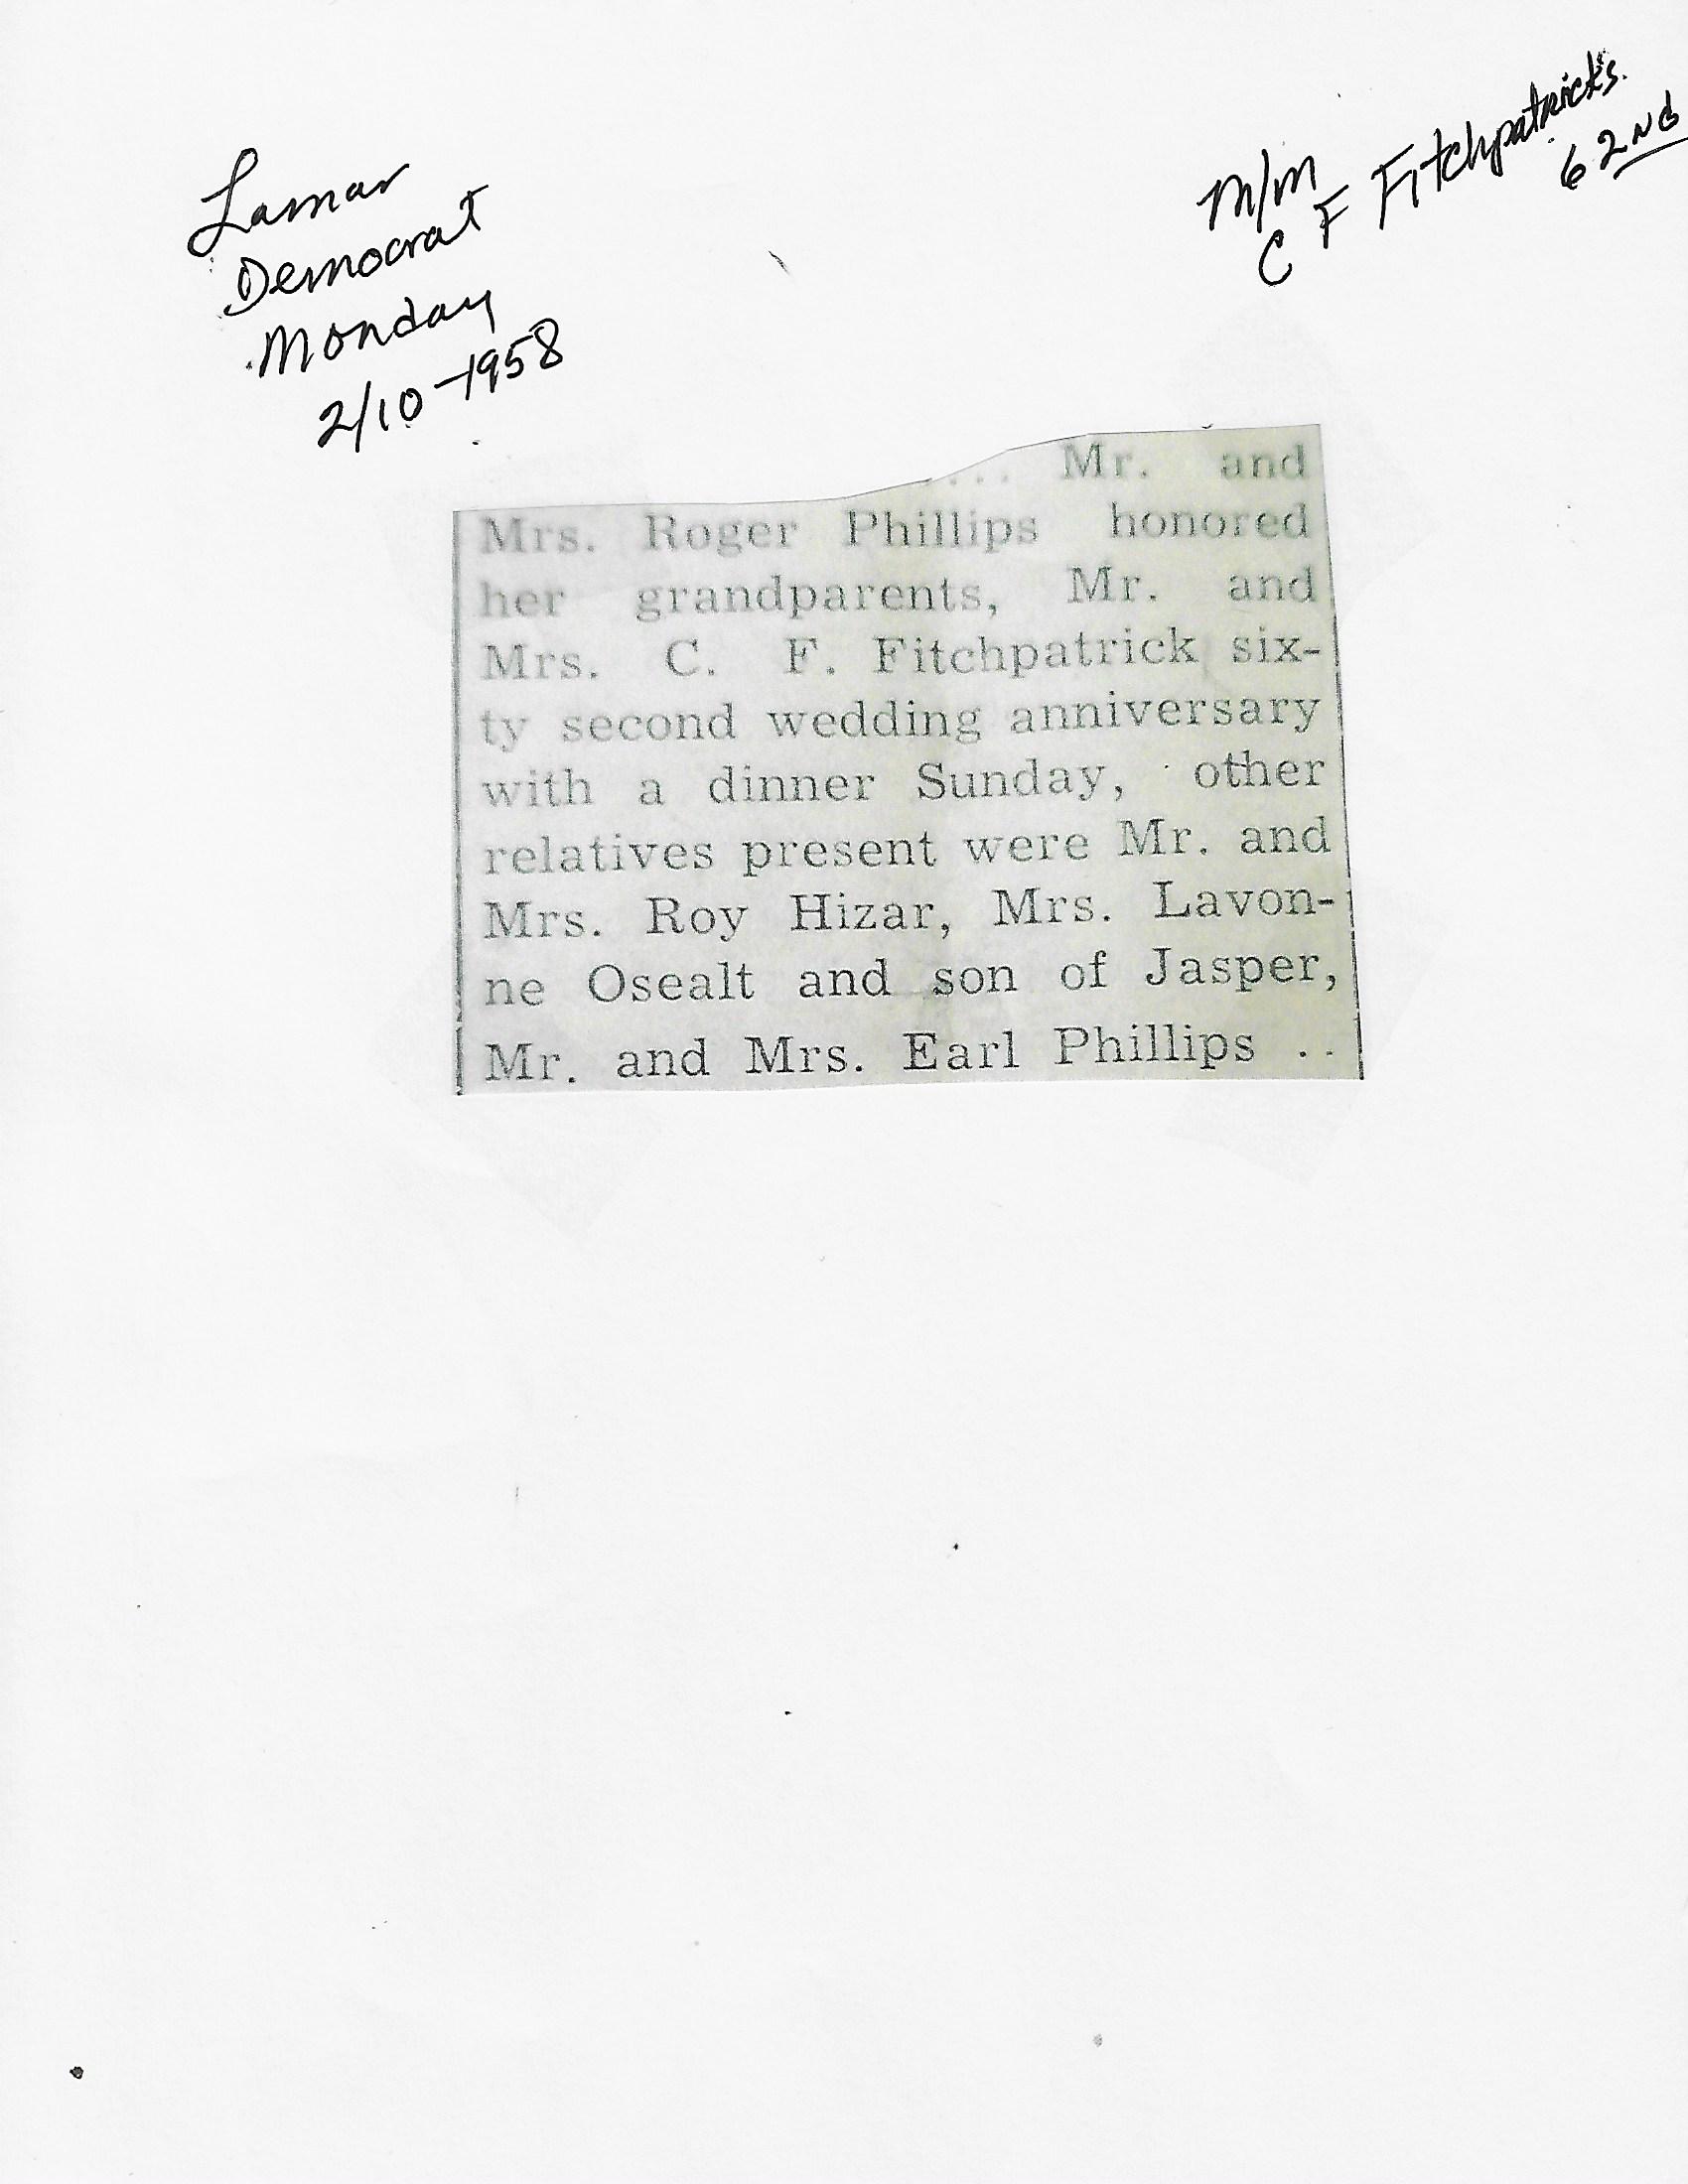 Lamar
Democrat
Monday
2/10-1958
M/M
C F Fitchpatrick's.
62ND
.... Mr. and
Mrs. Roger Phillips honored
her grandparents, Mr. and
Mrs. C. F. Fitchpatrick six-
ty second wedding anniversary
with a dinner Sunday, other
relatives present were Mr. and
Mrs. Roy Hizar, Mrs. Lavon-
ne Osealt and son of Jasper,
Mr. and Mrs. Earl Phillips ..